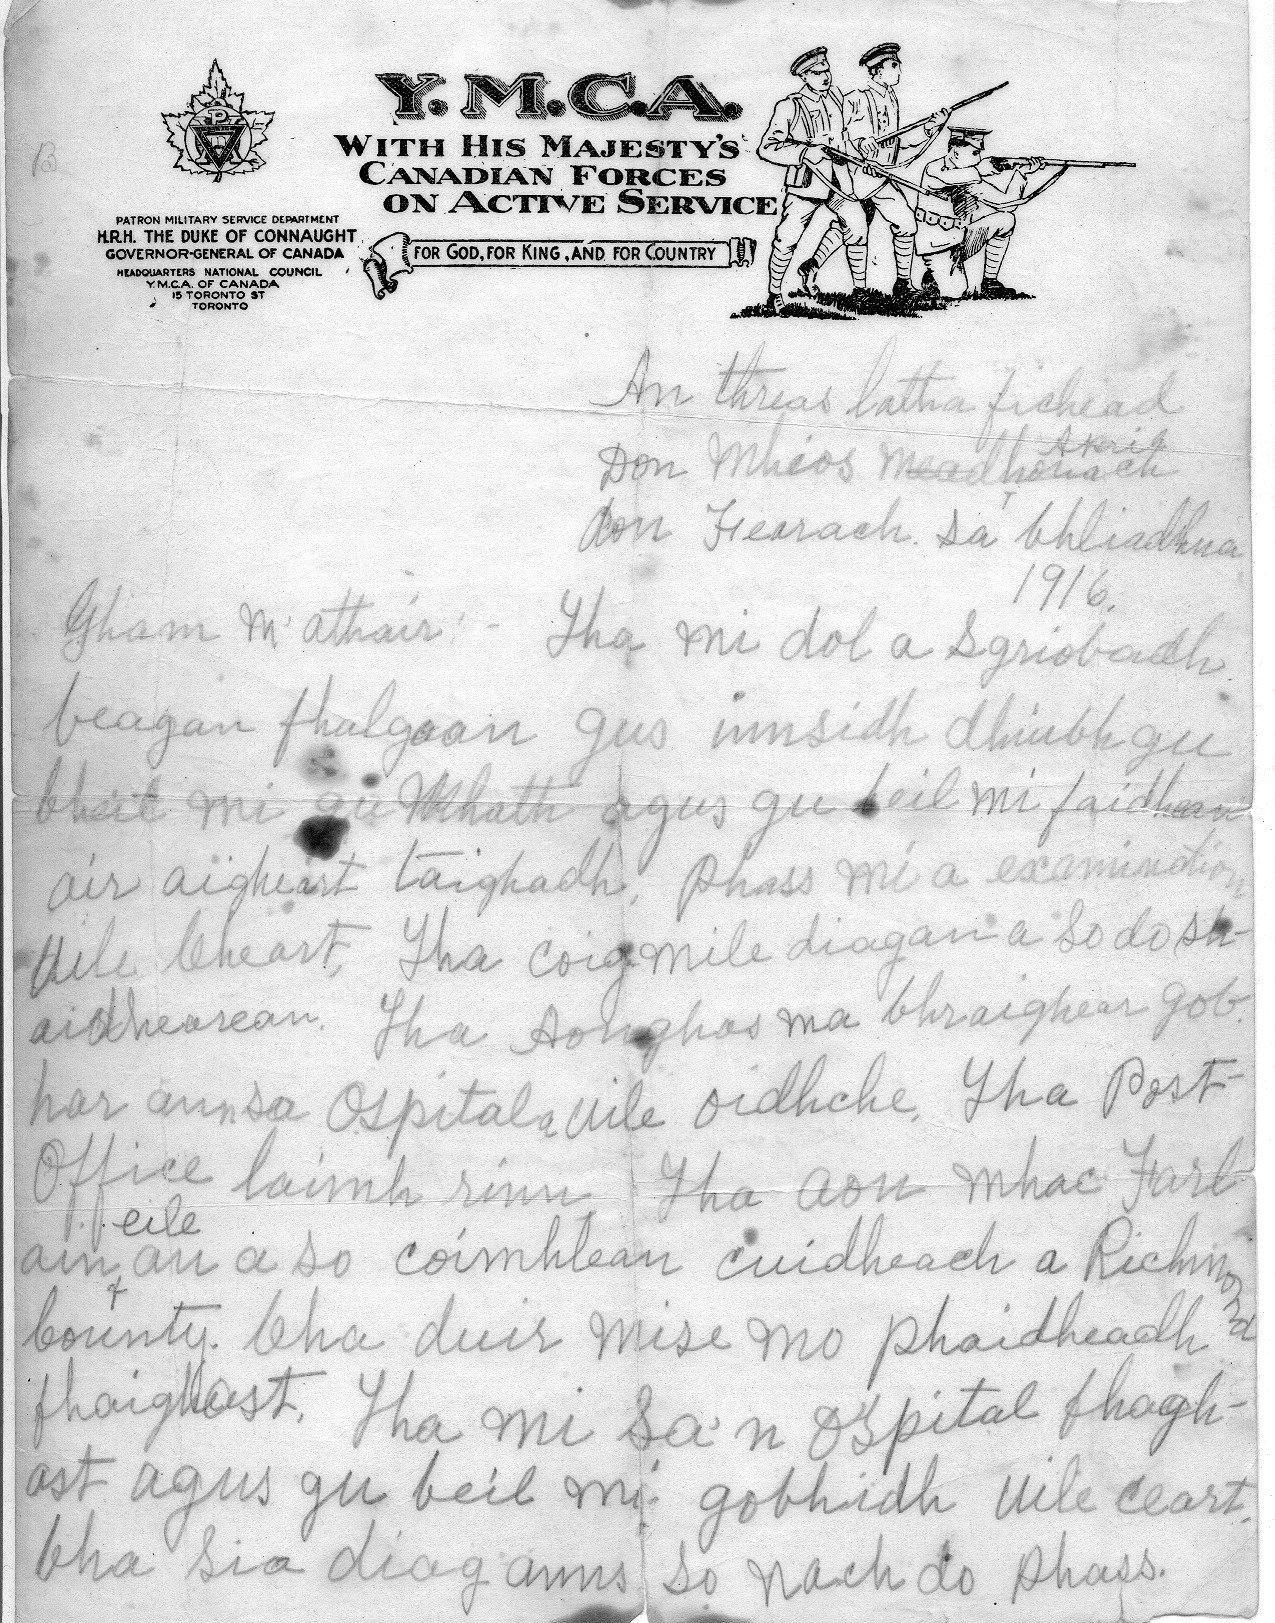 Y.M.C.A.
WITH HIS MAJESTY'S
CANADIAN FORCES
ON ACTIVE SERVICE
FOR GOD, FOR KING, AND FOR COUNTRY
PATRON MILITARY SERVICE DEPARTMENT
H.R.H. THE DUKE OF CONNAUGHT
GOVERNOR-GENERAL OF CANADA
HEADQUARTERS NATIONAL COUNCIL
Y.M.C.A. OF CANADA
15 TORONTO ST
TORONTO
An threas latha fichead
Don Mhios Meadhonach
don Fearach. Sa bhliadhna
1916.
Gham M'athair:- Tha mi dol a Sgriobadh
beagan fhalgaan gus innsidh dhiubh gu
bheil mi gu Mhath agus gu beil mi faidhean
air aigheart taighadh. Phass mi a examination
uile Cheart. Tha Coig mile diagan a So do sh-
aidhearean. Tha Aonghas ma bhraighear gob-
har annsa Ospital a uile oidhche. Tha Post-
Office laimh rinn Tha aon mhac Farl-
eile
ain an a so coimhlean cuidheach a Richmond
County. Cha duir mise mo phaidheadh
fhaighast. Tha mi Sa'n Ospital fhagh-
ast agus gu beil mi gobhidh uile ceart.
Cha Sia diag anns So nach do phass.